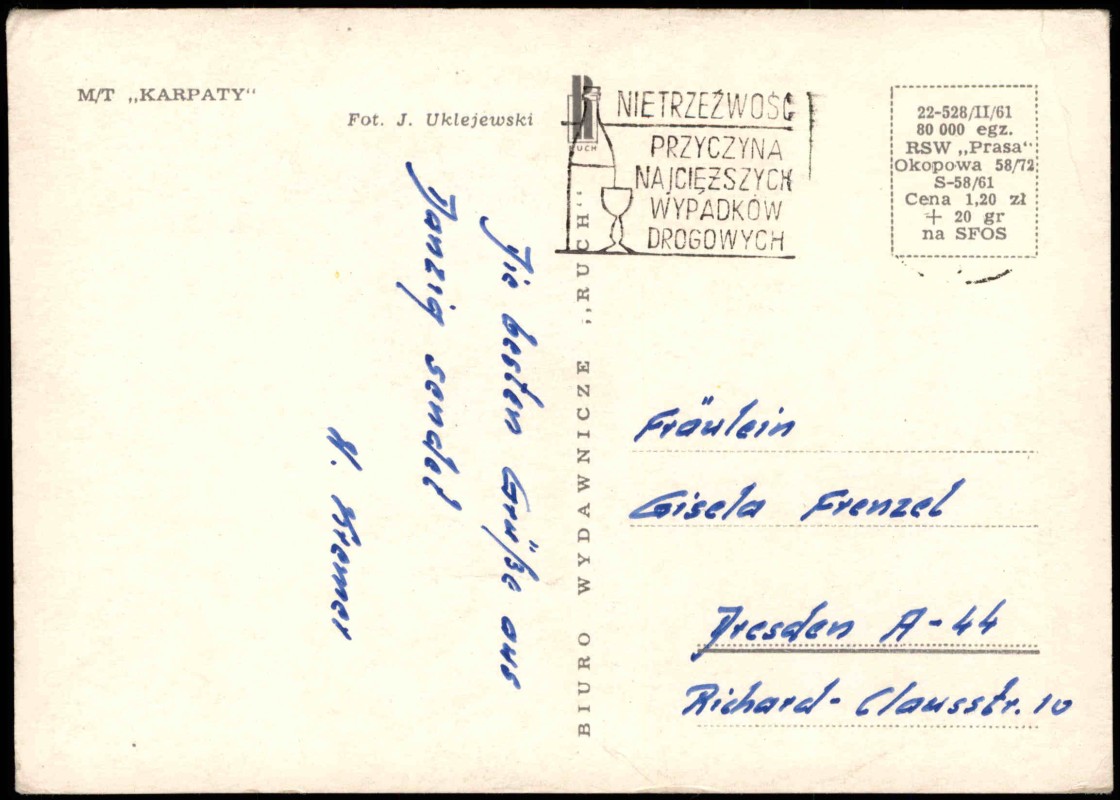 M/T „KARPATY“
Fot. J. Uklejewski
RUCH
NIETRZEŹWOŚĆ
PRZYCZYNA
NAJCIĘŻSZYCH
WYPADKÓW
DROGOWYCH
22-528/II/61
80 000 egz.
RSW „Prasa“
Okopowa 58/72
S-58/61
Cena 1,20 zł
+ 20 gr
na SFOS
Die besten Grüße aus
Danzig sendet
W. Kremer
BIURO WYDAWNICZE „RUCH"
Fräulein
Gisela Frenzel
Dresden A-44
Richard-Clausstr. 10